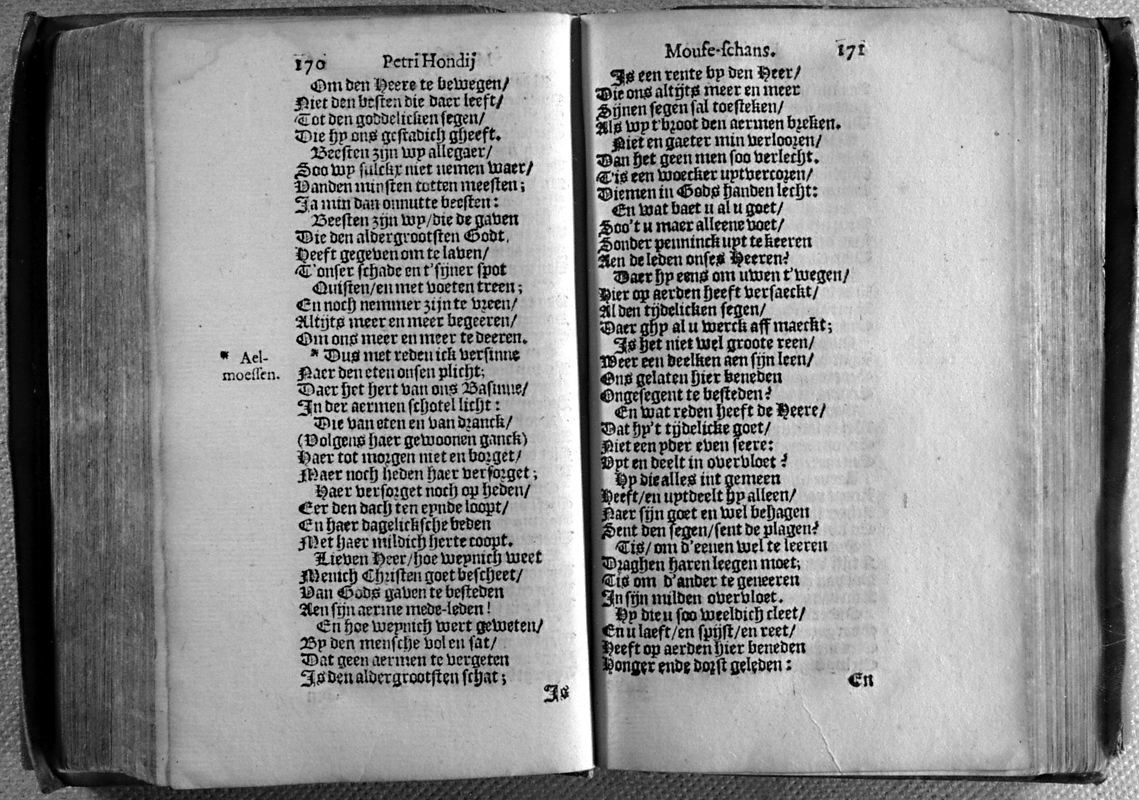 170 Petri Hondij
Om den Heere te bewegen/
Niet den besten die daer leeft/
Tot den goddelicken segen/
Die hy ons gestadich gheeft.
Beesten zijn wy allegaer/
Soo wy sulckx niet nemen waer/
Vanden minsten totten meesten;
Ja min dan onnutte beesten:
Beesten zijn wy/die de gaven
Die den aldergrootsten Godt,
Heeft gegeven om te laven/
T'onser schade en t'sijner spot
Quisten/en met voeten treen;
En noch nemmer zijn te vreen/
Altijts meer en meer begeeren/
Om ons meer en meer te deeren.
* Dus met reden ick versinne
Naer den eten onsen plicht;
Daer het hert van ons Basinne/
In der aermen schotel licht:
Die van eten en van dranck/
(Volgens haer gewoonen ganck)
Haer tot morgen niet en borget/
Maer noch heden haer versorget;
Haer versorget noch op heden/
Eer den dach ten eynde loopt/
En haer dagelicksche beden
Met haer mildich herte coopt.
Lieven Heer/hoe weynich weet
Menich Christen goet bescheet/
Van Gods gaven te besteden
Aen sijn aerme mede-leden!
En hoe weynich wert geweten/
By den mensche vol en sat/
Dat geen aermen te vergeten
Is den aldergrootsten schat;
Is
* Ael-
moessen.
Mouse-schans. 171
Is een rente by den Heer/
Die ons altijts meer en meer
Sijnen segen sal toesteken/
Als wy t'broot den aermen breken.
Niet en gaeter min verlooren/
Dan het geen men soo verlecht.
T'is een woecker uytvercoren/
Diemen in Gods handen lecht:
En wat baet u al u goet/
Soo't u maer alleene voet/
Sonder penninck uyt te keeren
Aen de leden onses Heeren?
Daer hy eens om uwen t'wegen/
Hier op aerden heeft versaeckt/
Al den tijdelicken segen/
Daer ghy al u werck aff maeckt;
Is het niet wel groote reen/
Weer een deelken aen sijn leen/
Ons gelaten hier beneden
Ongesegent te besteden?
En wat reden heeft de Heere/
Dat hy't tijdelicke goet/
Niet een yder even seere:
Uyt en deelt in overvloet?
Hy die alles int gemeen
Heeft/en uytdeelt hy alleen/
Naer sijn goet en wel behagen
Sent den segen/sent de plagen?
Tis/ om d'eenen wel te leeren
Draghen haren leegen moet;
Tis om d'ander te geneeren
In sijn milden overvloet.
Hy die u soo weeldich cleet/
En u laeft/en spijst/en reet/
Heeft op aerden hier beneden
Honger ende dorst geleden:
En